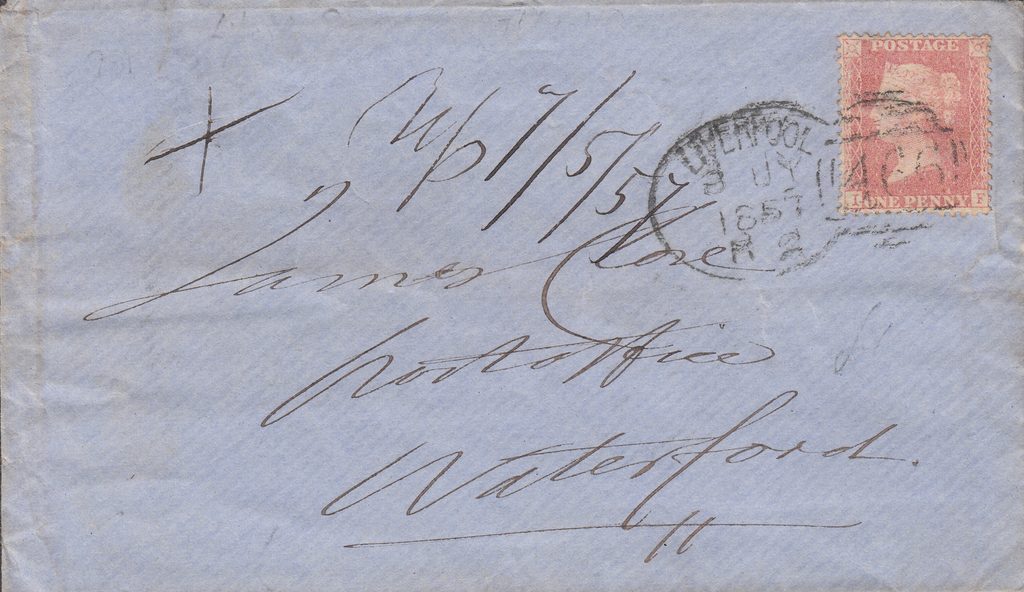 POSTAGE
ONE PENNY
I F
LIVERPOOL
3 JY
1857
R 2
466
7/5/57
James Clore
Post office
Waterford.